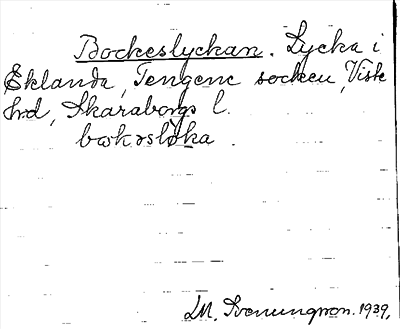 Bockeslyckan. Lycka i
Eklanda, Tengene socken, Viste
hrd, Skaraborgs l.
bɷkəslỳka.
LM, Svenungsson. 1939.